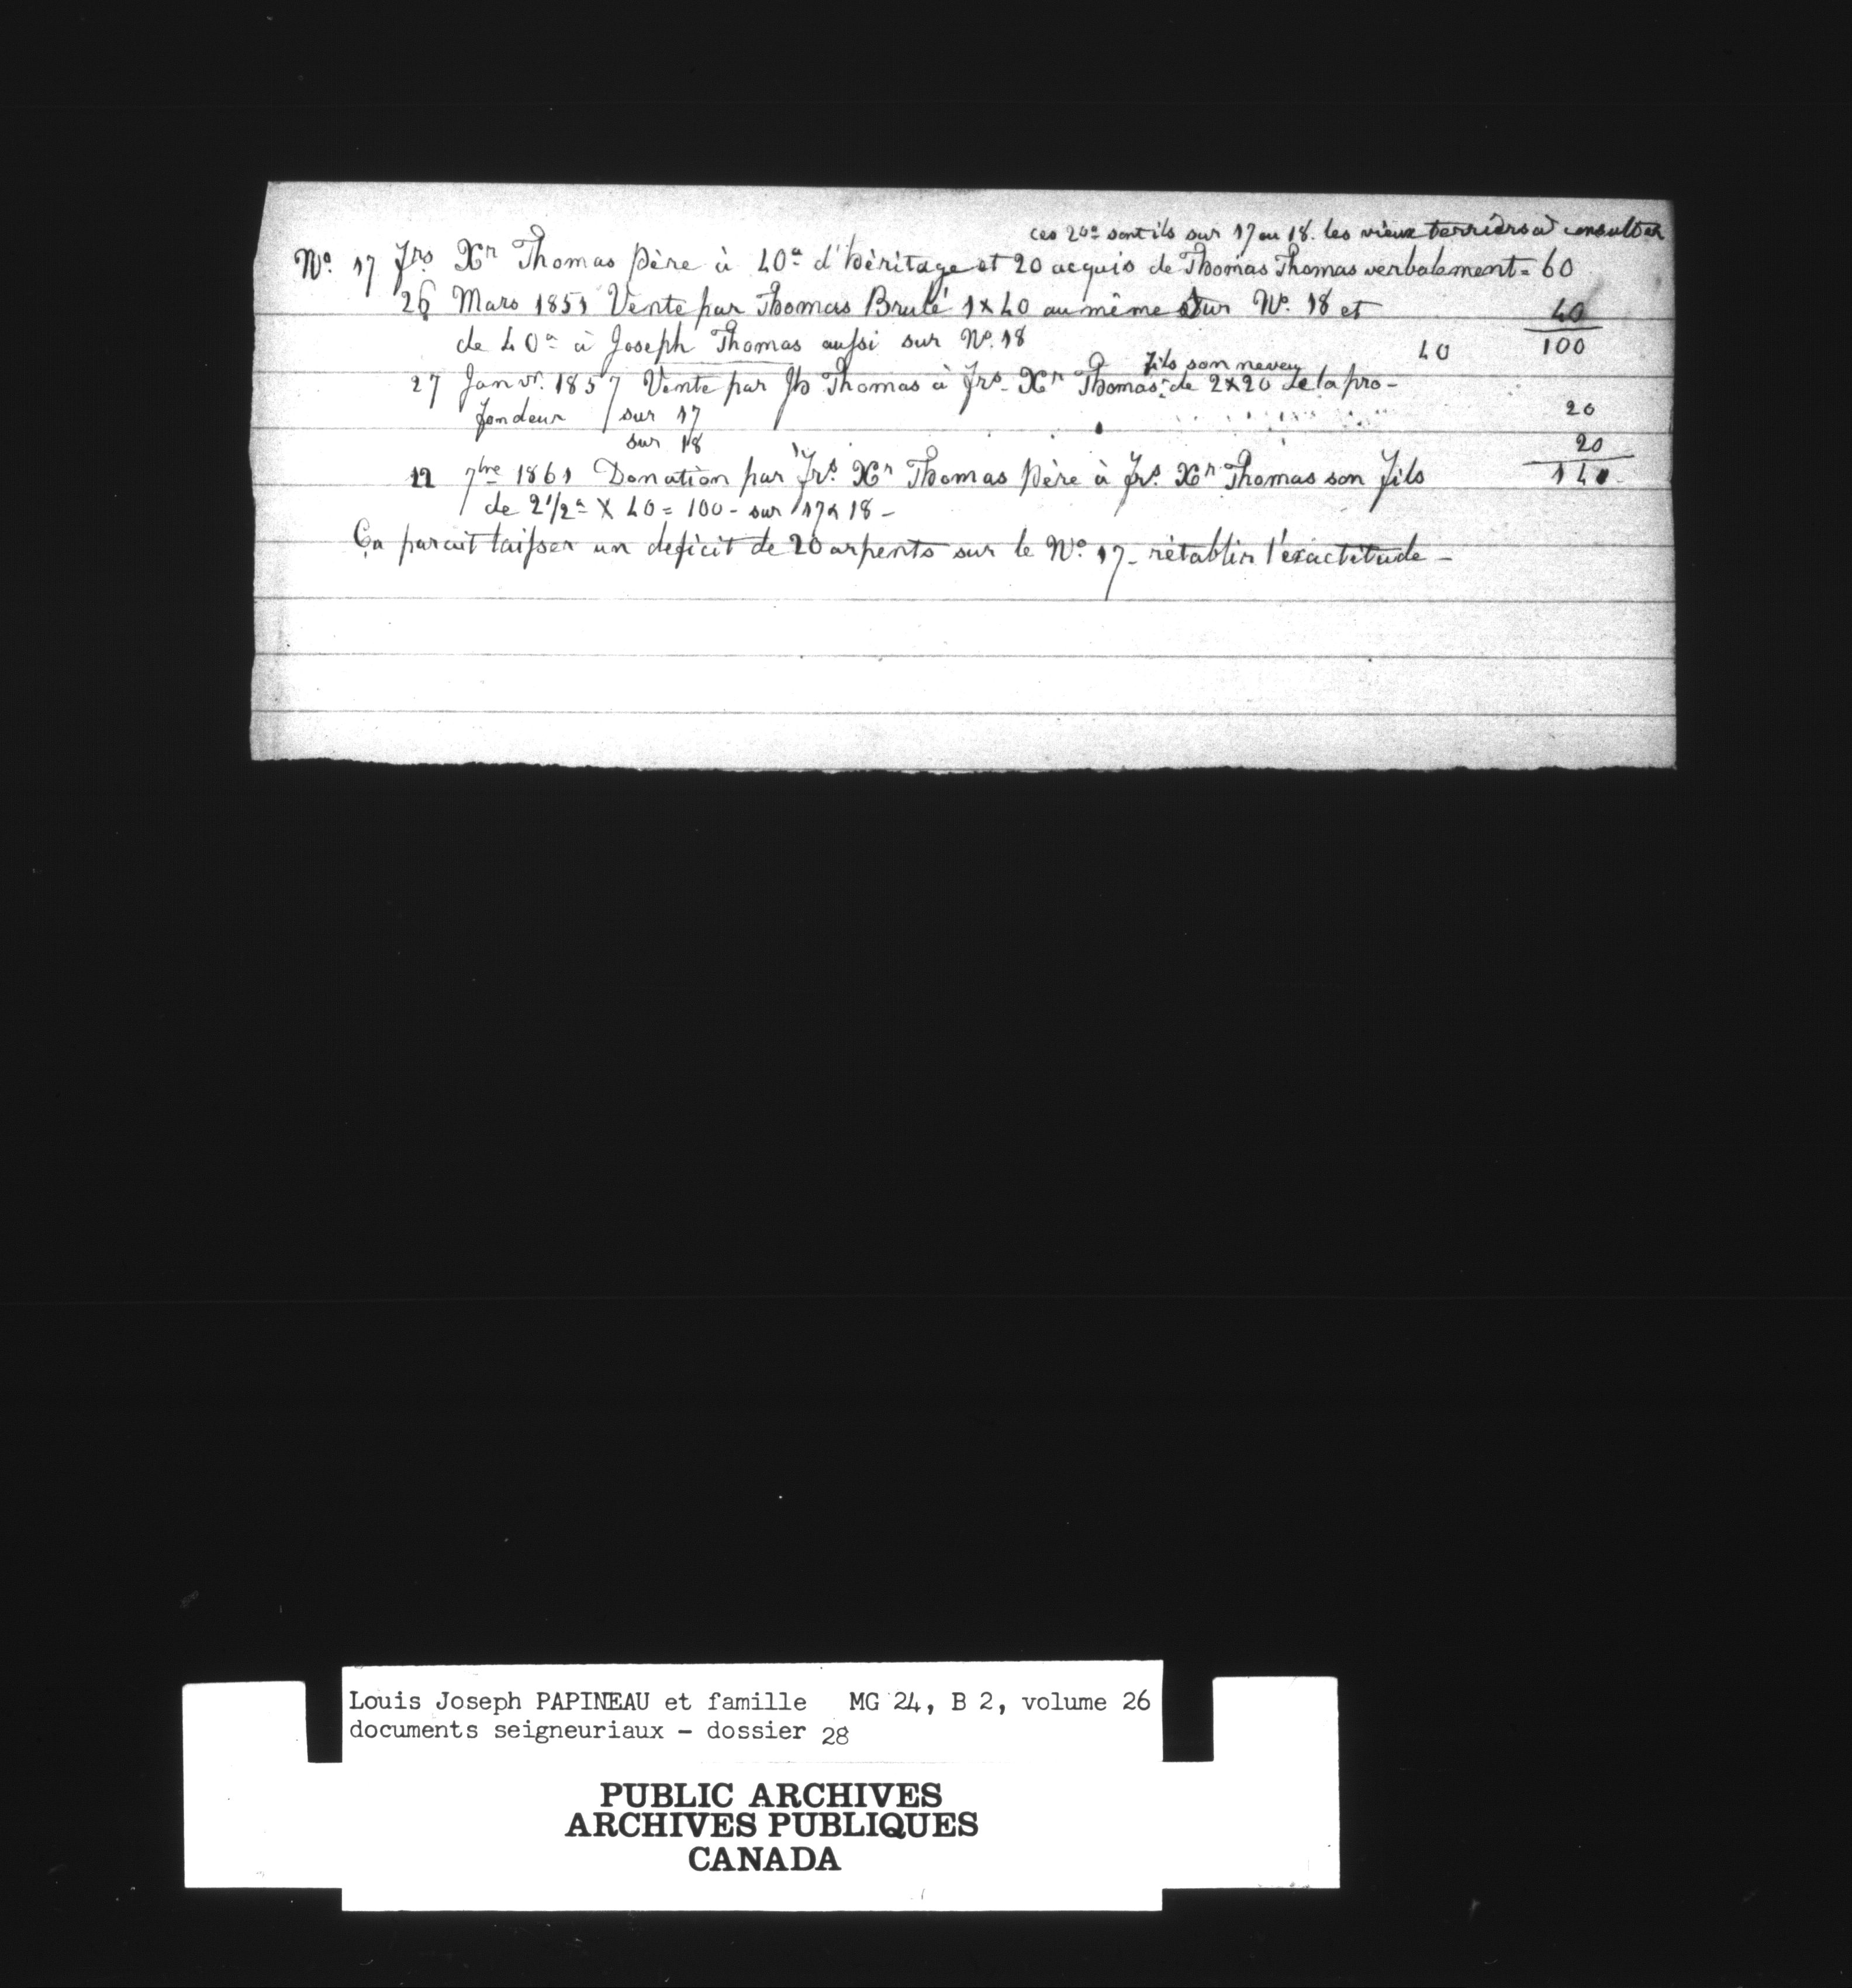 ces 20a sont ils sur 17 ou 18. les vieux terriers à consulter
No. 17 Frs. Xr Thomas Père à 40a d'héritage et 20 acquis de Thomas Thomas verbalement = 60
26 Mars 1851 Vente par Thomas Brulé 1x40 au même sur No. 18 et 40
de 40a à Joseph Thomas aussi sur No. 18 40 100
fils son neveu
27 Janvr. 1857 Vente par Jh Thomas à Frs. Xr Thomas de 2x20 de la pro-
fondeur sur 17 20
sur 18 20
12 7bre 1861 Donation par Frs. Xr Thomas Père à Frs. Xr Thomas son fils 140
de 2 1/2a X 40 = 100 - sur 17 & 18 -
Ça parait laisser un deficit de 20 arpents sur le No. 17 - rétablir l'exactitude -
Louis Joseph PAPINEAU et famille MG 24, B 2, volume 26
documents seigneuriaux - dossier 28
PUBLIC ARCHIVES
ARCHIVES PUBLIQUES
CANADA